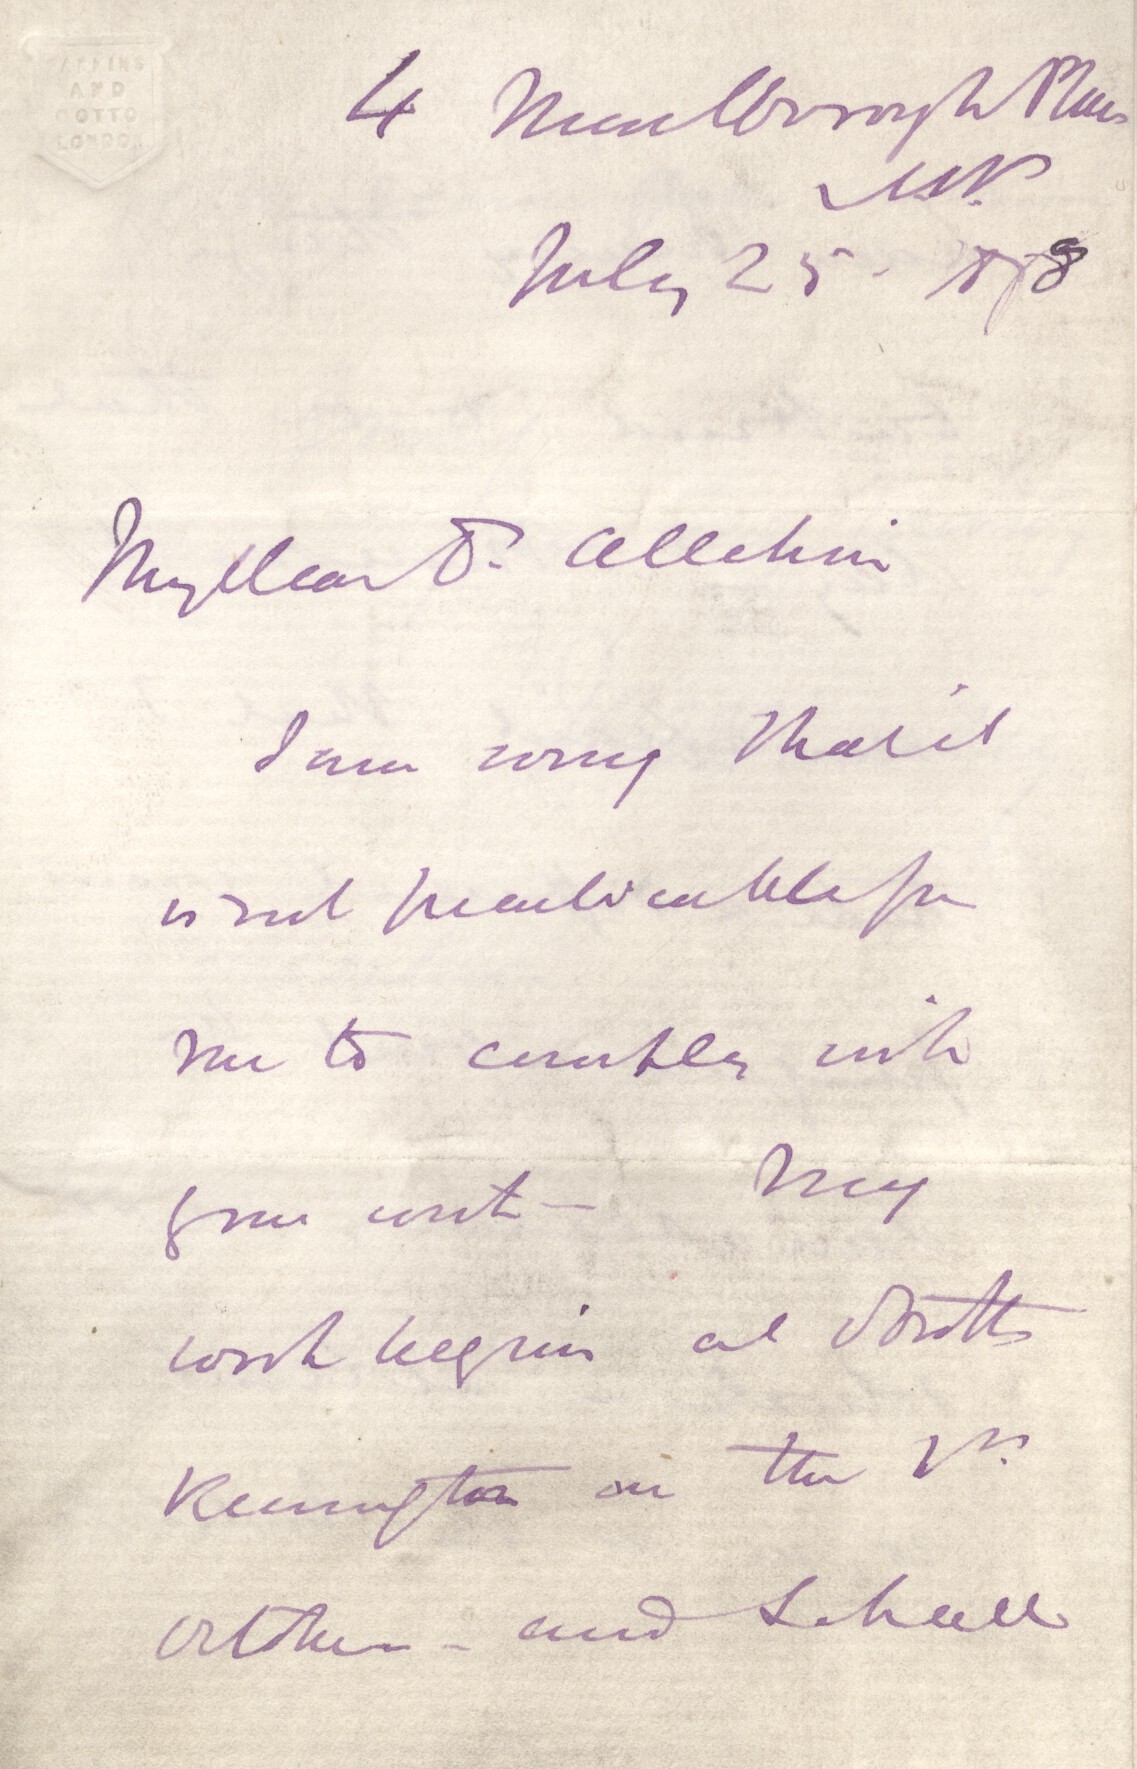 PARKINS
AND
GOTTO
LONDON
4 Marlborough Place
N.W.
July 25. 1878
My dear Dr. Allchin
I am sorry that it
is not practicable for
me to comply with
your wish — My
work begins at South
Kensington on the 1st
October — and I shall